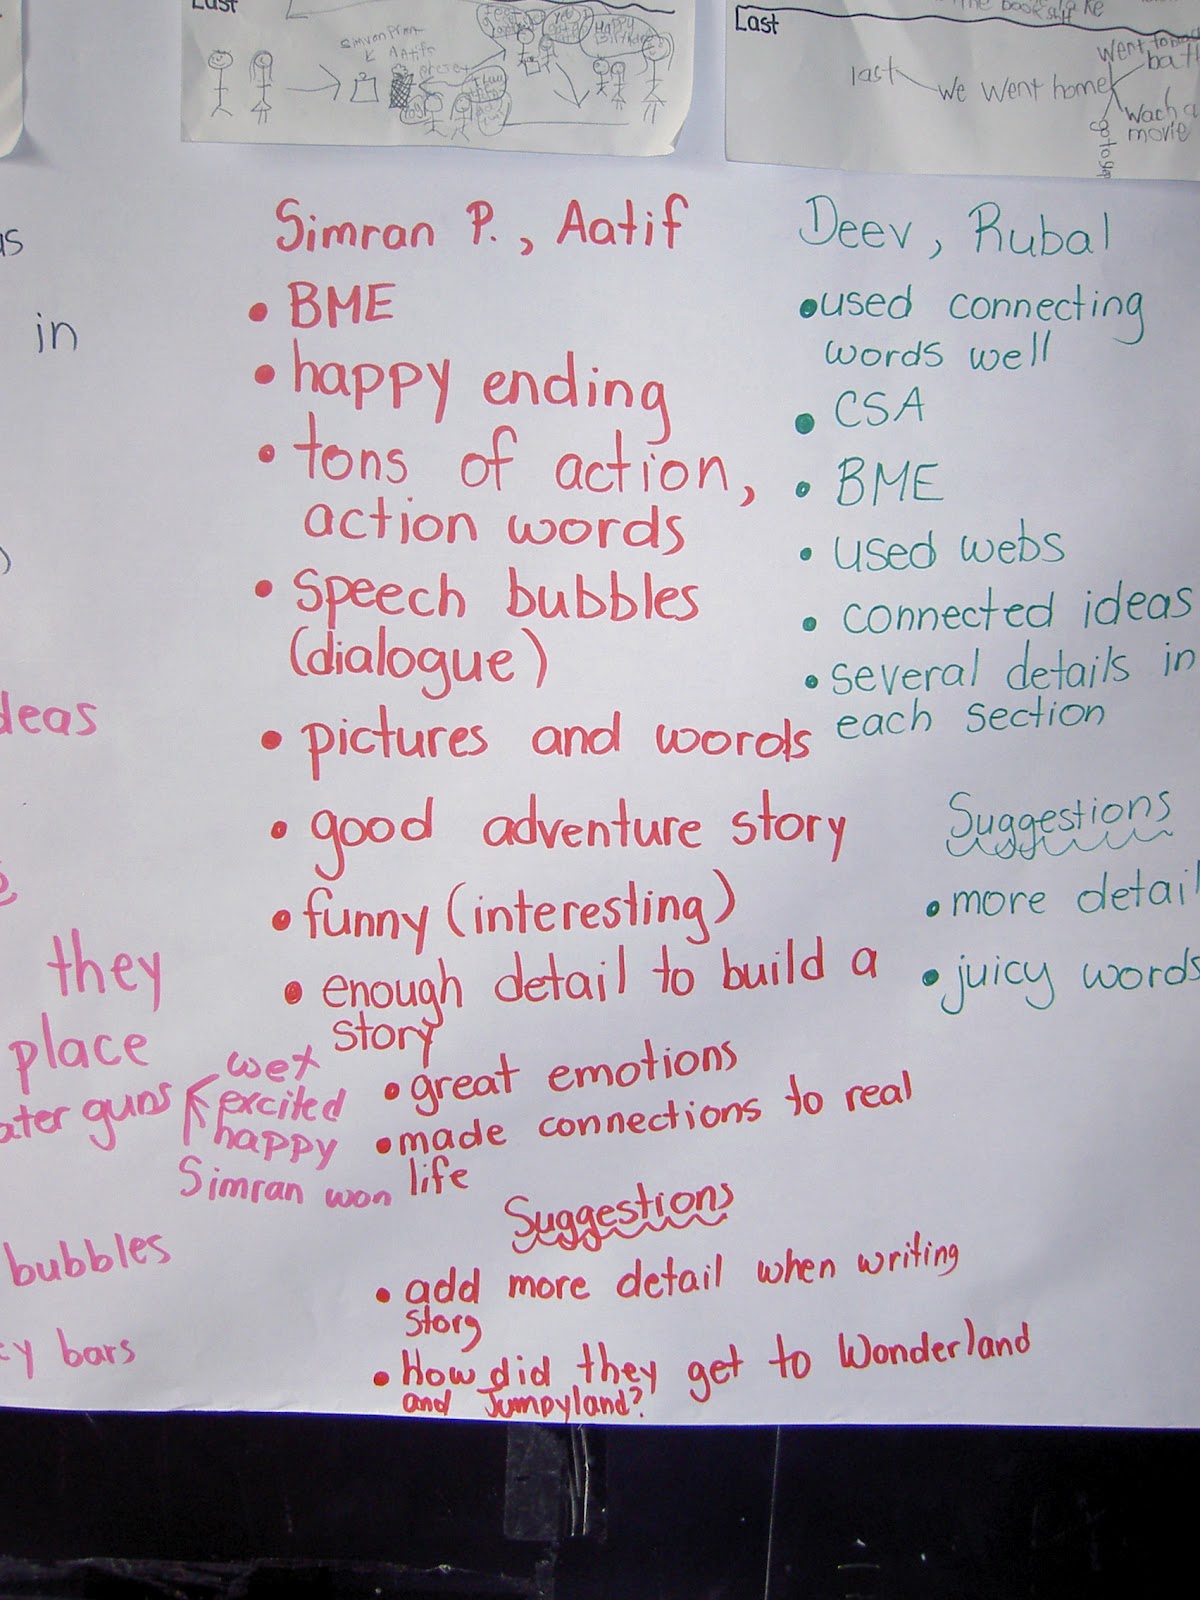 Last
Happy
Birthday
Simran
Aatif
Last
last
we went home
went to
movie
Simran P., Aatif
• BME
• happy ending
• tons of action,
action words
• speech bubbles
(dialogue)
• pictures and words
• good adventure story
• funny (interesting)
• enough detail to build a
story
• great emotions
• made connections to real
life
Suggestions
• add more detail when writing
story
• How did they get to Wonderland
and Jumpyland?
Deev, Rubal
• used connecting
words well
• CSA
• BME
• used webs
• connected ideas
• several details in
each section
Suggestions
• more detail
• juicy words
in
they
place
guns
wet
excited
happy
Simran won
bubbles
bars